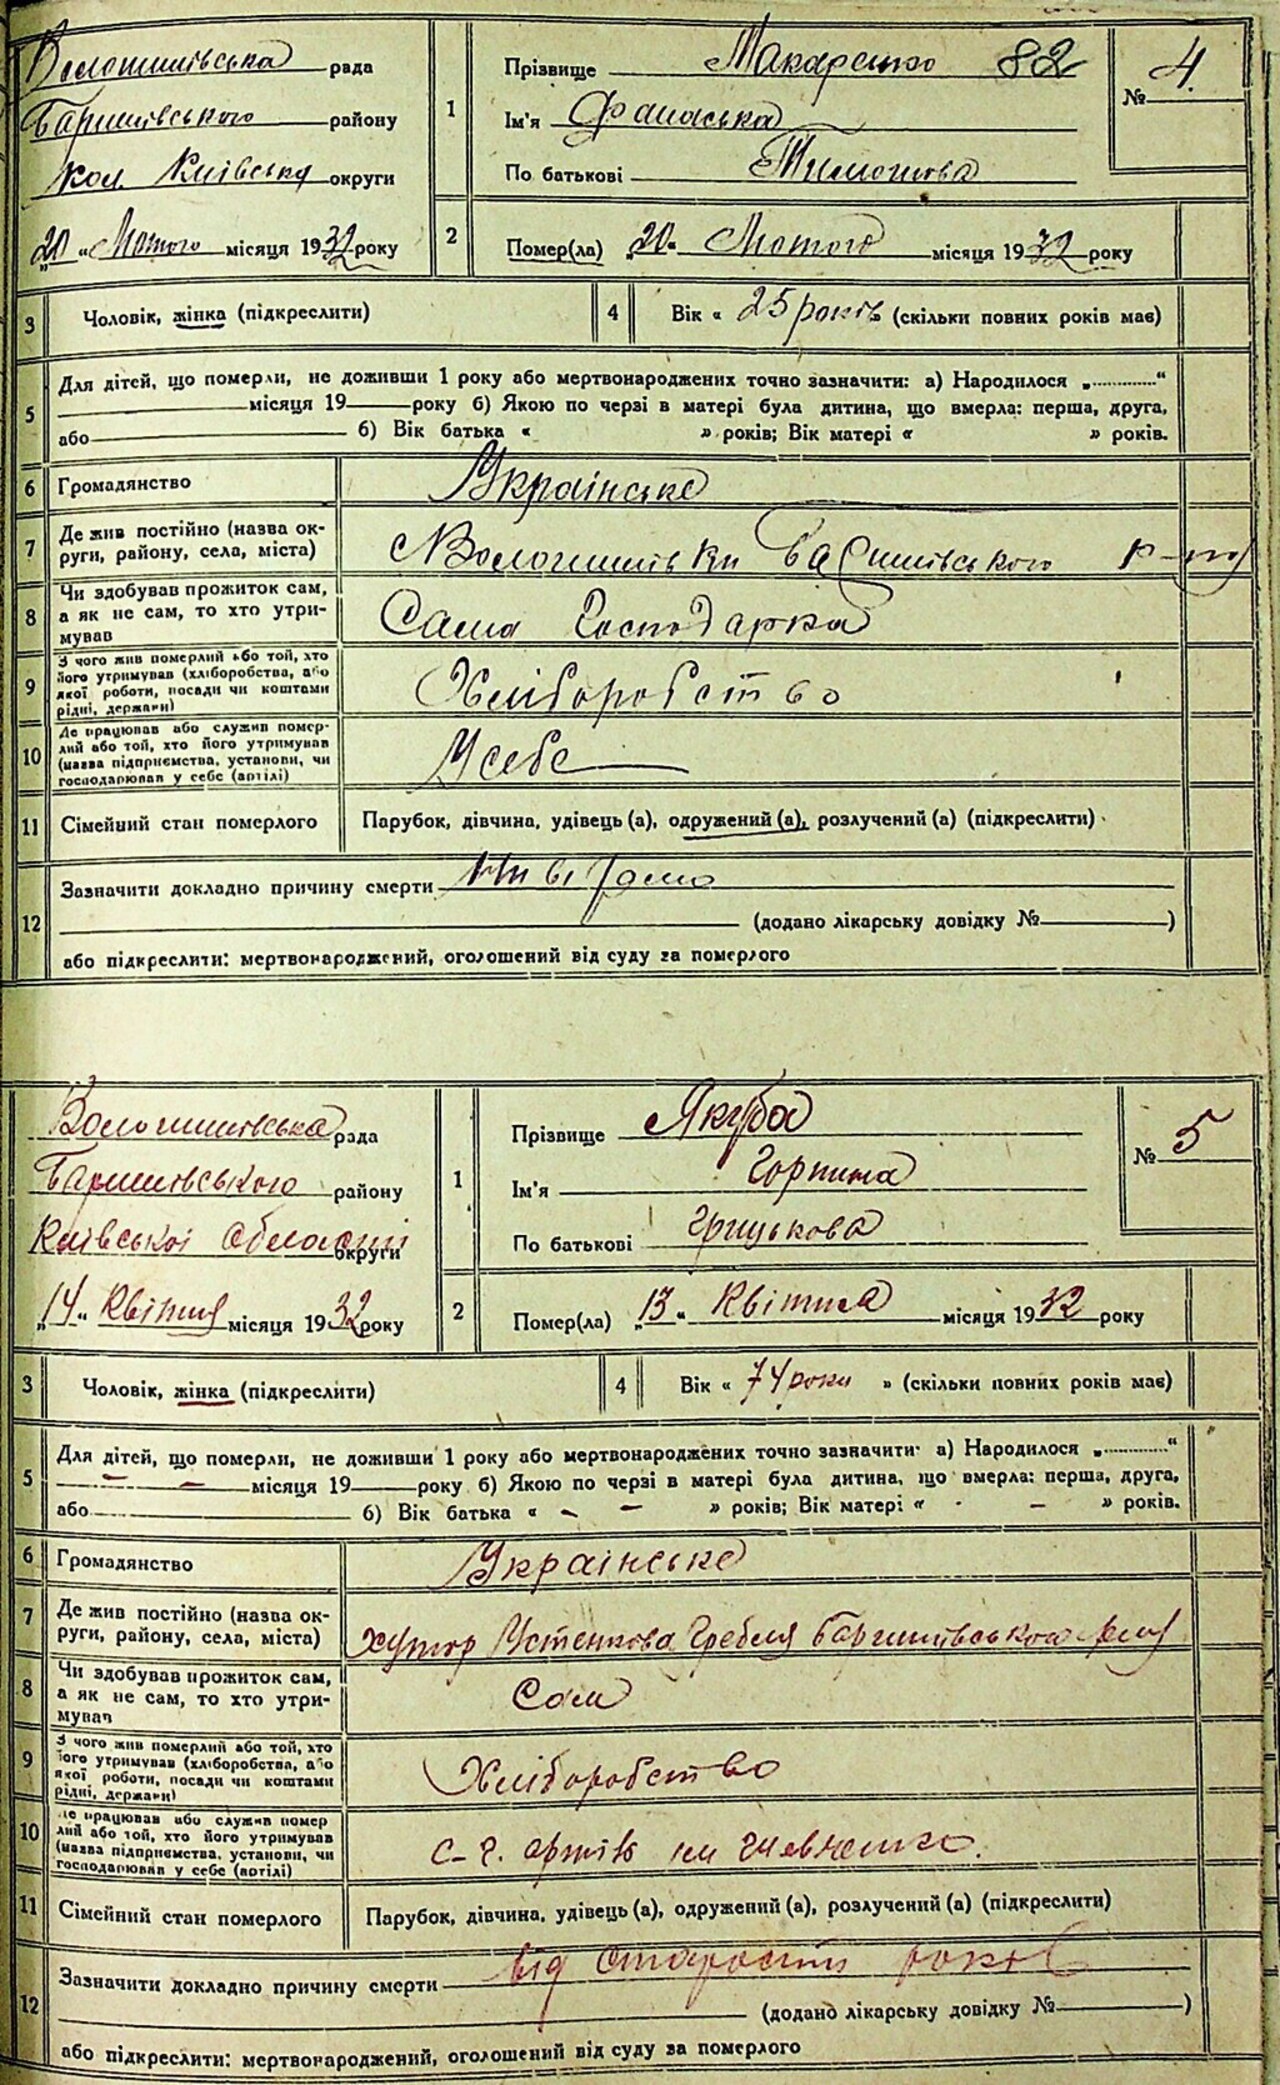 Волошинівська рада
Баришівського району
кол. Київська округи
„20" Лютого місяця 1932 року
1
Прізвище Макаренко 82
Ім'я Фанаська
По батькові Тимошова
№ 4
2
Помер(ла) „20" Лютого місяця 1932 року
3
Чоловік, жінка (підкреслити)
4
Вік « 25 років » (скільки повних років має)
5
Для дітей, що померли, не доживши 1 року або мертвонароджених точно зазначити: а) Народилося „............"
місяця 19 року б) Якою по черзі в матері була дитина, що вмерла: перша, друга,
або б) Вік батька « » років; Вік матері « » років.
6
Громадянство
Українське
7
Де жив постійно (назва ок-
руги, району, села, міста)
с Волошинівки Баришівського р-ну
8
Чи здобував прожиток сам,
а як не сам, то хто утри-
мував
Сама Господарка
9
З чого жив померлий або той, хто
його утримував (хліборобства, або
якої роботи, посади чи коштами
рідні, держави)
Хліборобство
10
Де працював або служив помер-
лий або той, хто його утримував
(назва підприємства, установи, чи
господарював у себе (артілі)
У себе
11
Сімейний стан померлого
Парубок, дівчина, удівець (а), одружений (а), розлучений (а) (підкреслити)
12
Зазначити докладно причину смерти
(додано лікарську довідку № )
або підкреслити: мертвонароджений, оголошений від суду за померлого
Волошинівська рада
Баришівського району
Київської Області округи
„14" Квітня місяця 1932 року
1
Прізвище Якуба
Ім'я Горпина
По батькові Грицькова
№ 5
2
Помер(ла) „13" Квітня місяця 1932 року
3
Чоловік, жінка (підкреслити)
4
Вік « 74 роки » (скільки повних років має)
5
Для дітей, що померли, не доживши 1 року або мертвонароджених точно зазначити: а) Народилося „............"
— — місяця 19 року б) Якою по черзі в матері була дитина, що вмерла: перша, друга,
або б) Вік батька « - - » років; Вік матері « - - » років.
6
Громадянство
Українське
7
Де жив постійно (назва ок-
руги, району, села, міста)
хутор Устенкова Гребля Баришівського р-ну
8
Чи здобував прожиток сам,
а як не сам, то хто утри-
мував
Сам
9
З чого жив померлий або той, хто
його утримував (хліборобства, або
якої роботи, посади чи коштами
рідні, держави)
Хліборобство
10
Де працював або служив помер
лий або той, хто його утримував
(назва підприємства, установи, чи
господарював у себе (артілі)
с-г. артіль ім Шевченка.
11
Сімейний стан померлого
Парубок, дівчина, удівець (а), одружений (а), розлучений (а) (підкреслити)
12
Зазначити докладно причину смерти від старости років
(додано лікарську довідку № )
або підкреслити: мертвонароджений, оголошений від суду за померлого